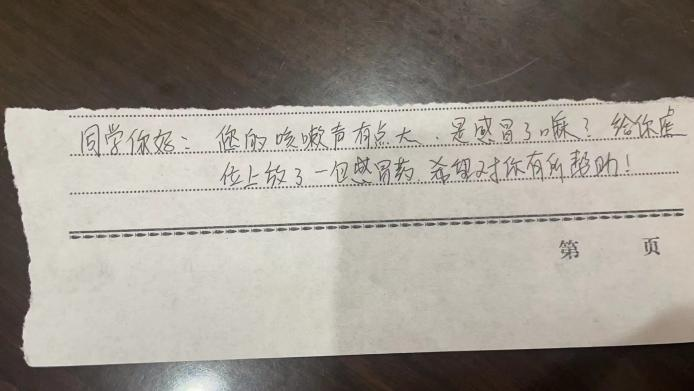 同学你好：您的咳嗽声有点大，是感冒了嘛？给你座
位上放了一包感冒药，希望对你有所帮助！
第 页